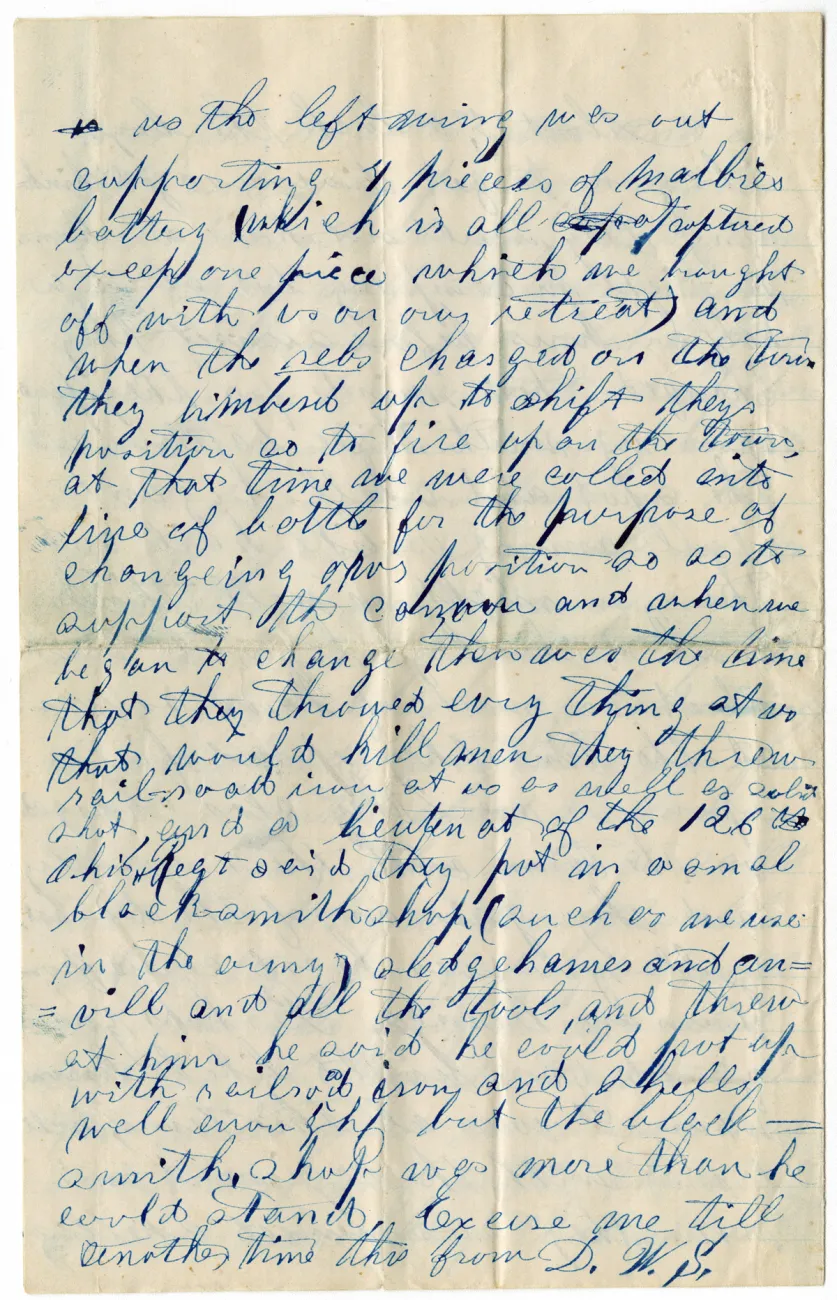 us the left wing was out
supporting 4 pieces of Malbies
battery (which is all captured
excep one piece which we brought
off with us on our retreat) and
when the rebs charged on the town
they limberd up to shift they
position so to fire up on the town,
at that time we were called into
line of battle for the purpose of
changeing our position so as to
support the cannon and when we
began to change then was the time
that they throwed evry thing at us
that would kill men they threw
rail-road iron at us as well as solid
shot, and a lieutenat of the 126
Ohio, Regt said they put in a smal
blacksmithshop (such as we use
in the army) sledgehames and an=
=vill and all the tools, and threw
at him he said he could put up
with railroad iron and shells
well enough but the black=
smith, shop was more than he
could stand. Excuse me till
another time this from D. W. S.